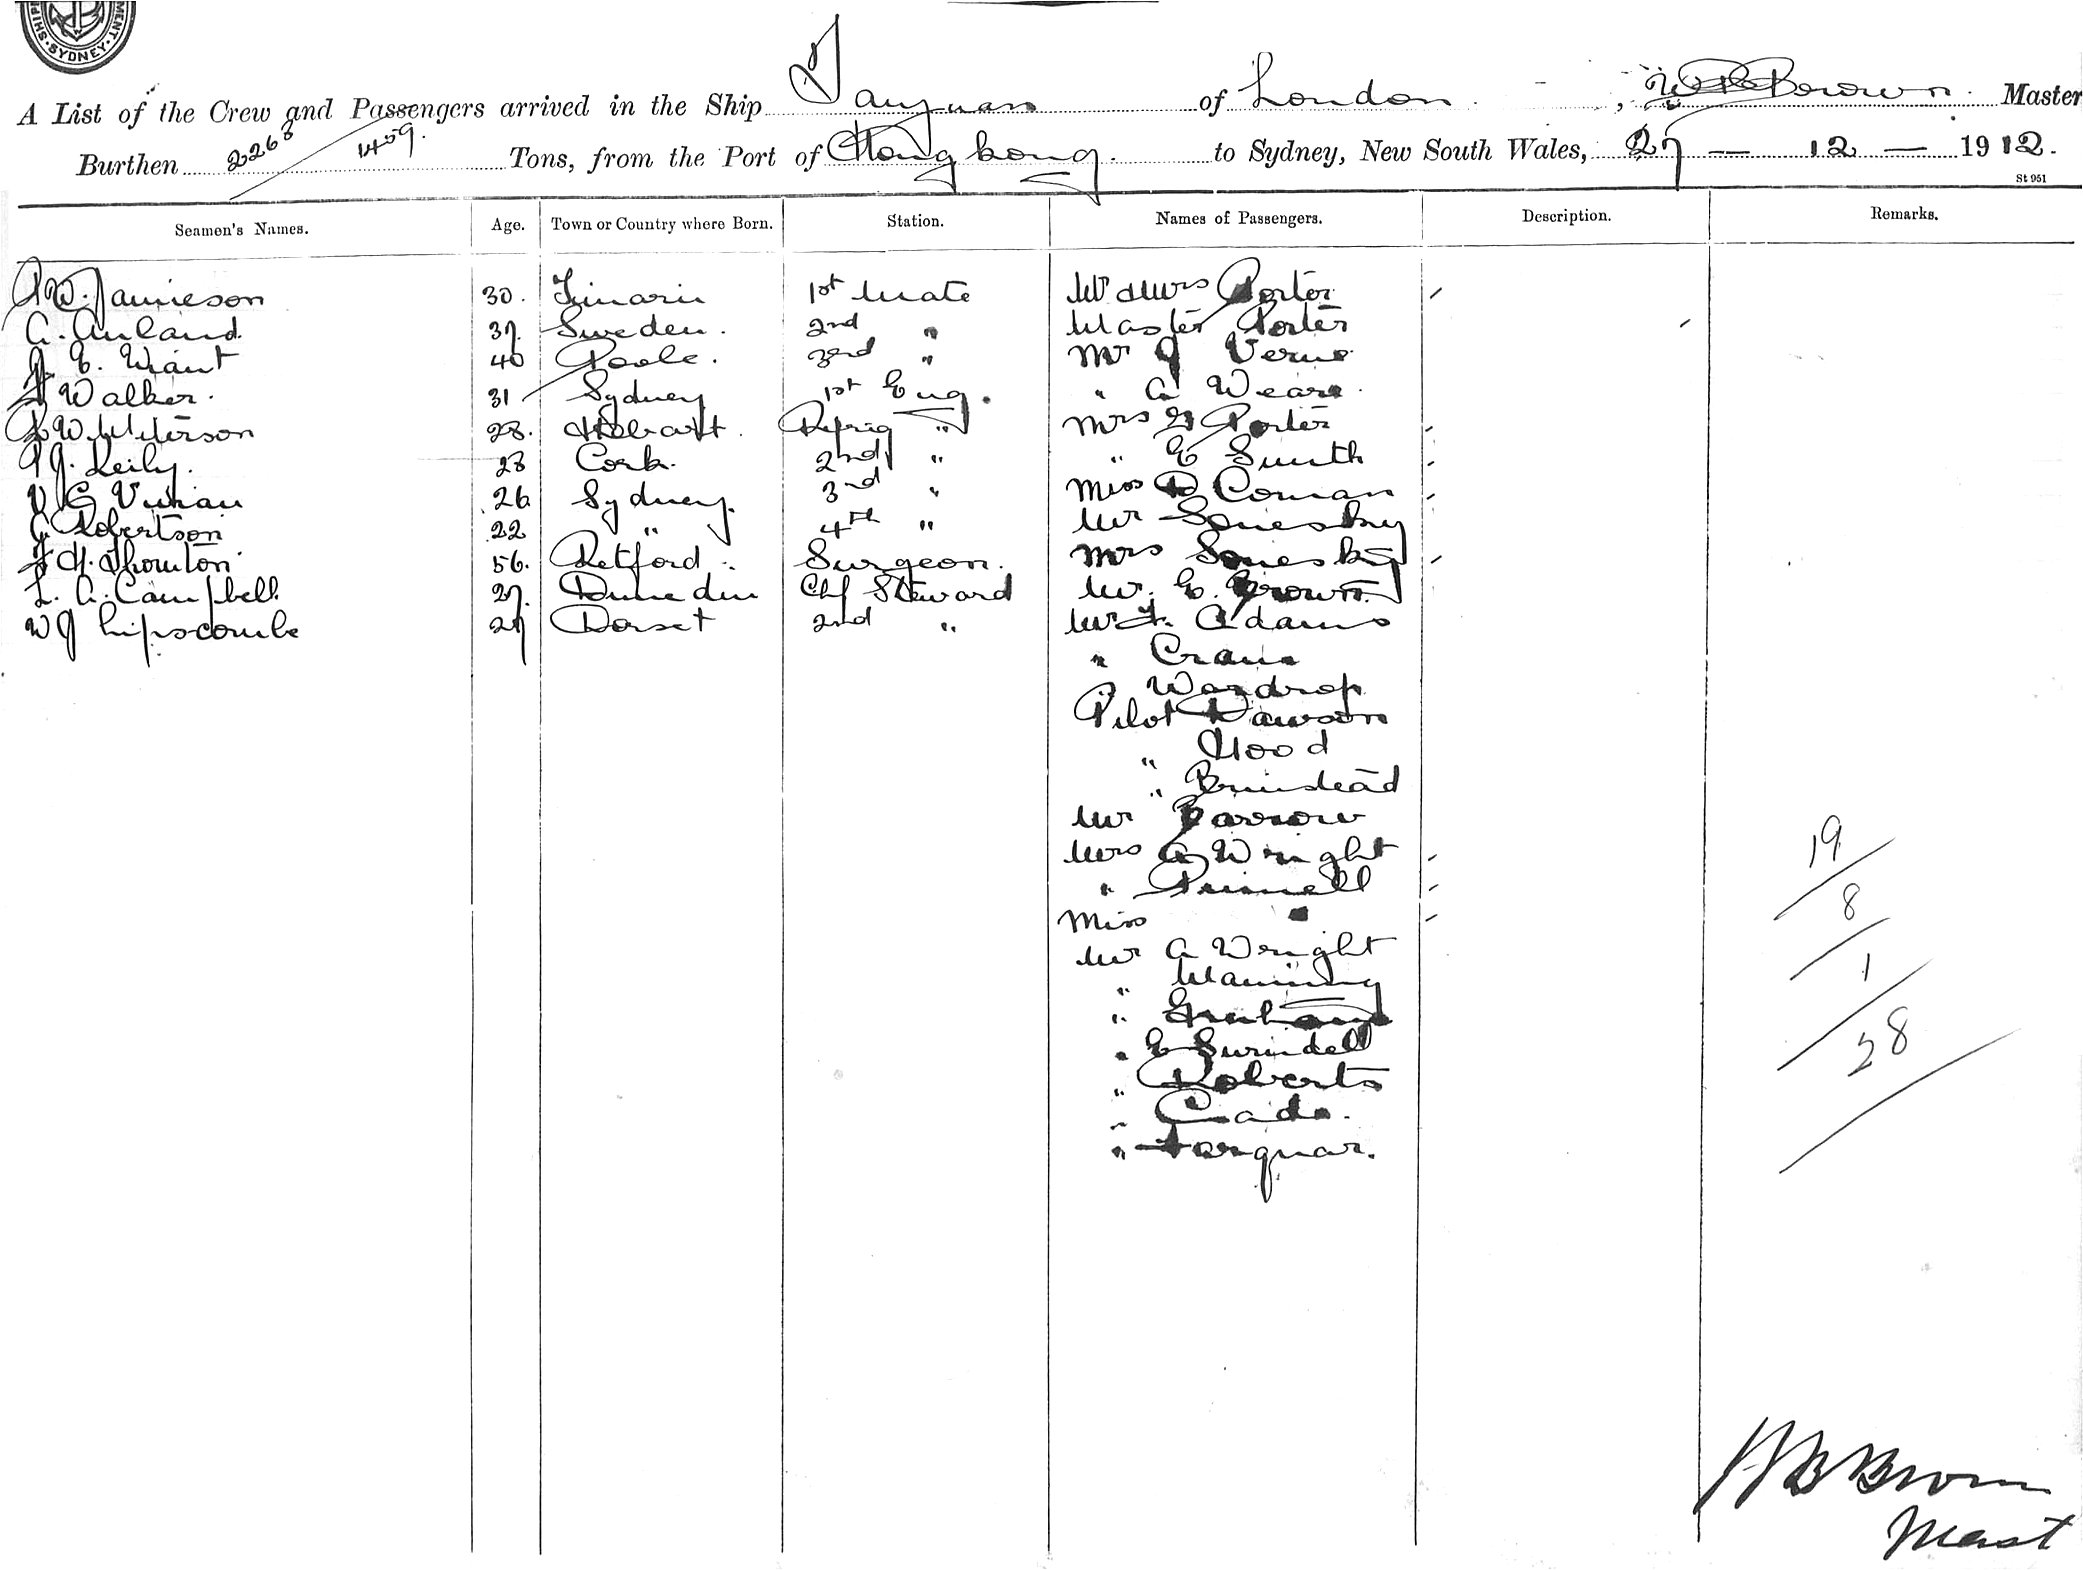 SHIP MENT. SYDNEY.
A List of the Crew and Passengers arrived in the Ship Taiyuan of London, Brown Master
Burthen 2263 / 1459. Tons, from the Port of Hong kong. to Sydney, New South Wales, 27 - 12 - 1912.
St 951
Seamen's Names. Age. Town or Country where Born. Station. Names of Passengers. Description. Remarks.
Jamieson 30. Timaru 1st Mate Mr & Mrs Porter
37. Sweden. 2nd " Master Porter
E. Want 40 Poole. 3rd " Mr J Verne
Walker. 31 Sydney 1st Eng. " A Weare
W. 28. Hobart. Refrig " Mrs G Porter
P J. Reily. 28 Cork. 2nd " " E Smith
V G Vivian 26 Sydney. 3rd " Miss D Coman
C Robertson 22 " 4th " Mr Sonesby
H. Thornton 56. Retford. Surgeon. Mrs Sonesby
L. A. Campbell 27. Dunedin Chf Steward Mr. E. Brown.
W J Lipscombe 27 Dorset 2nd " Mr F. Adams
" Crane
" Wardrop
Pilot Dawson
" Hood
" Brinstead
Mr Barrow
Mrs A Wright
" Prisnell
Miss "
Mr A Wright
" Manning
" Graham
" E Swindell
" Roberts
" Cade.
" Farquar.
19
8
1
28
Brown
Mast